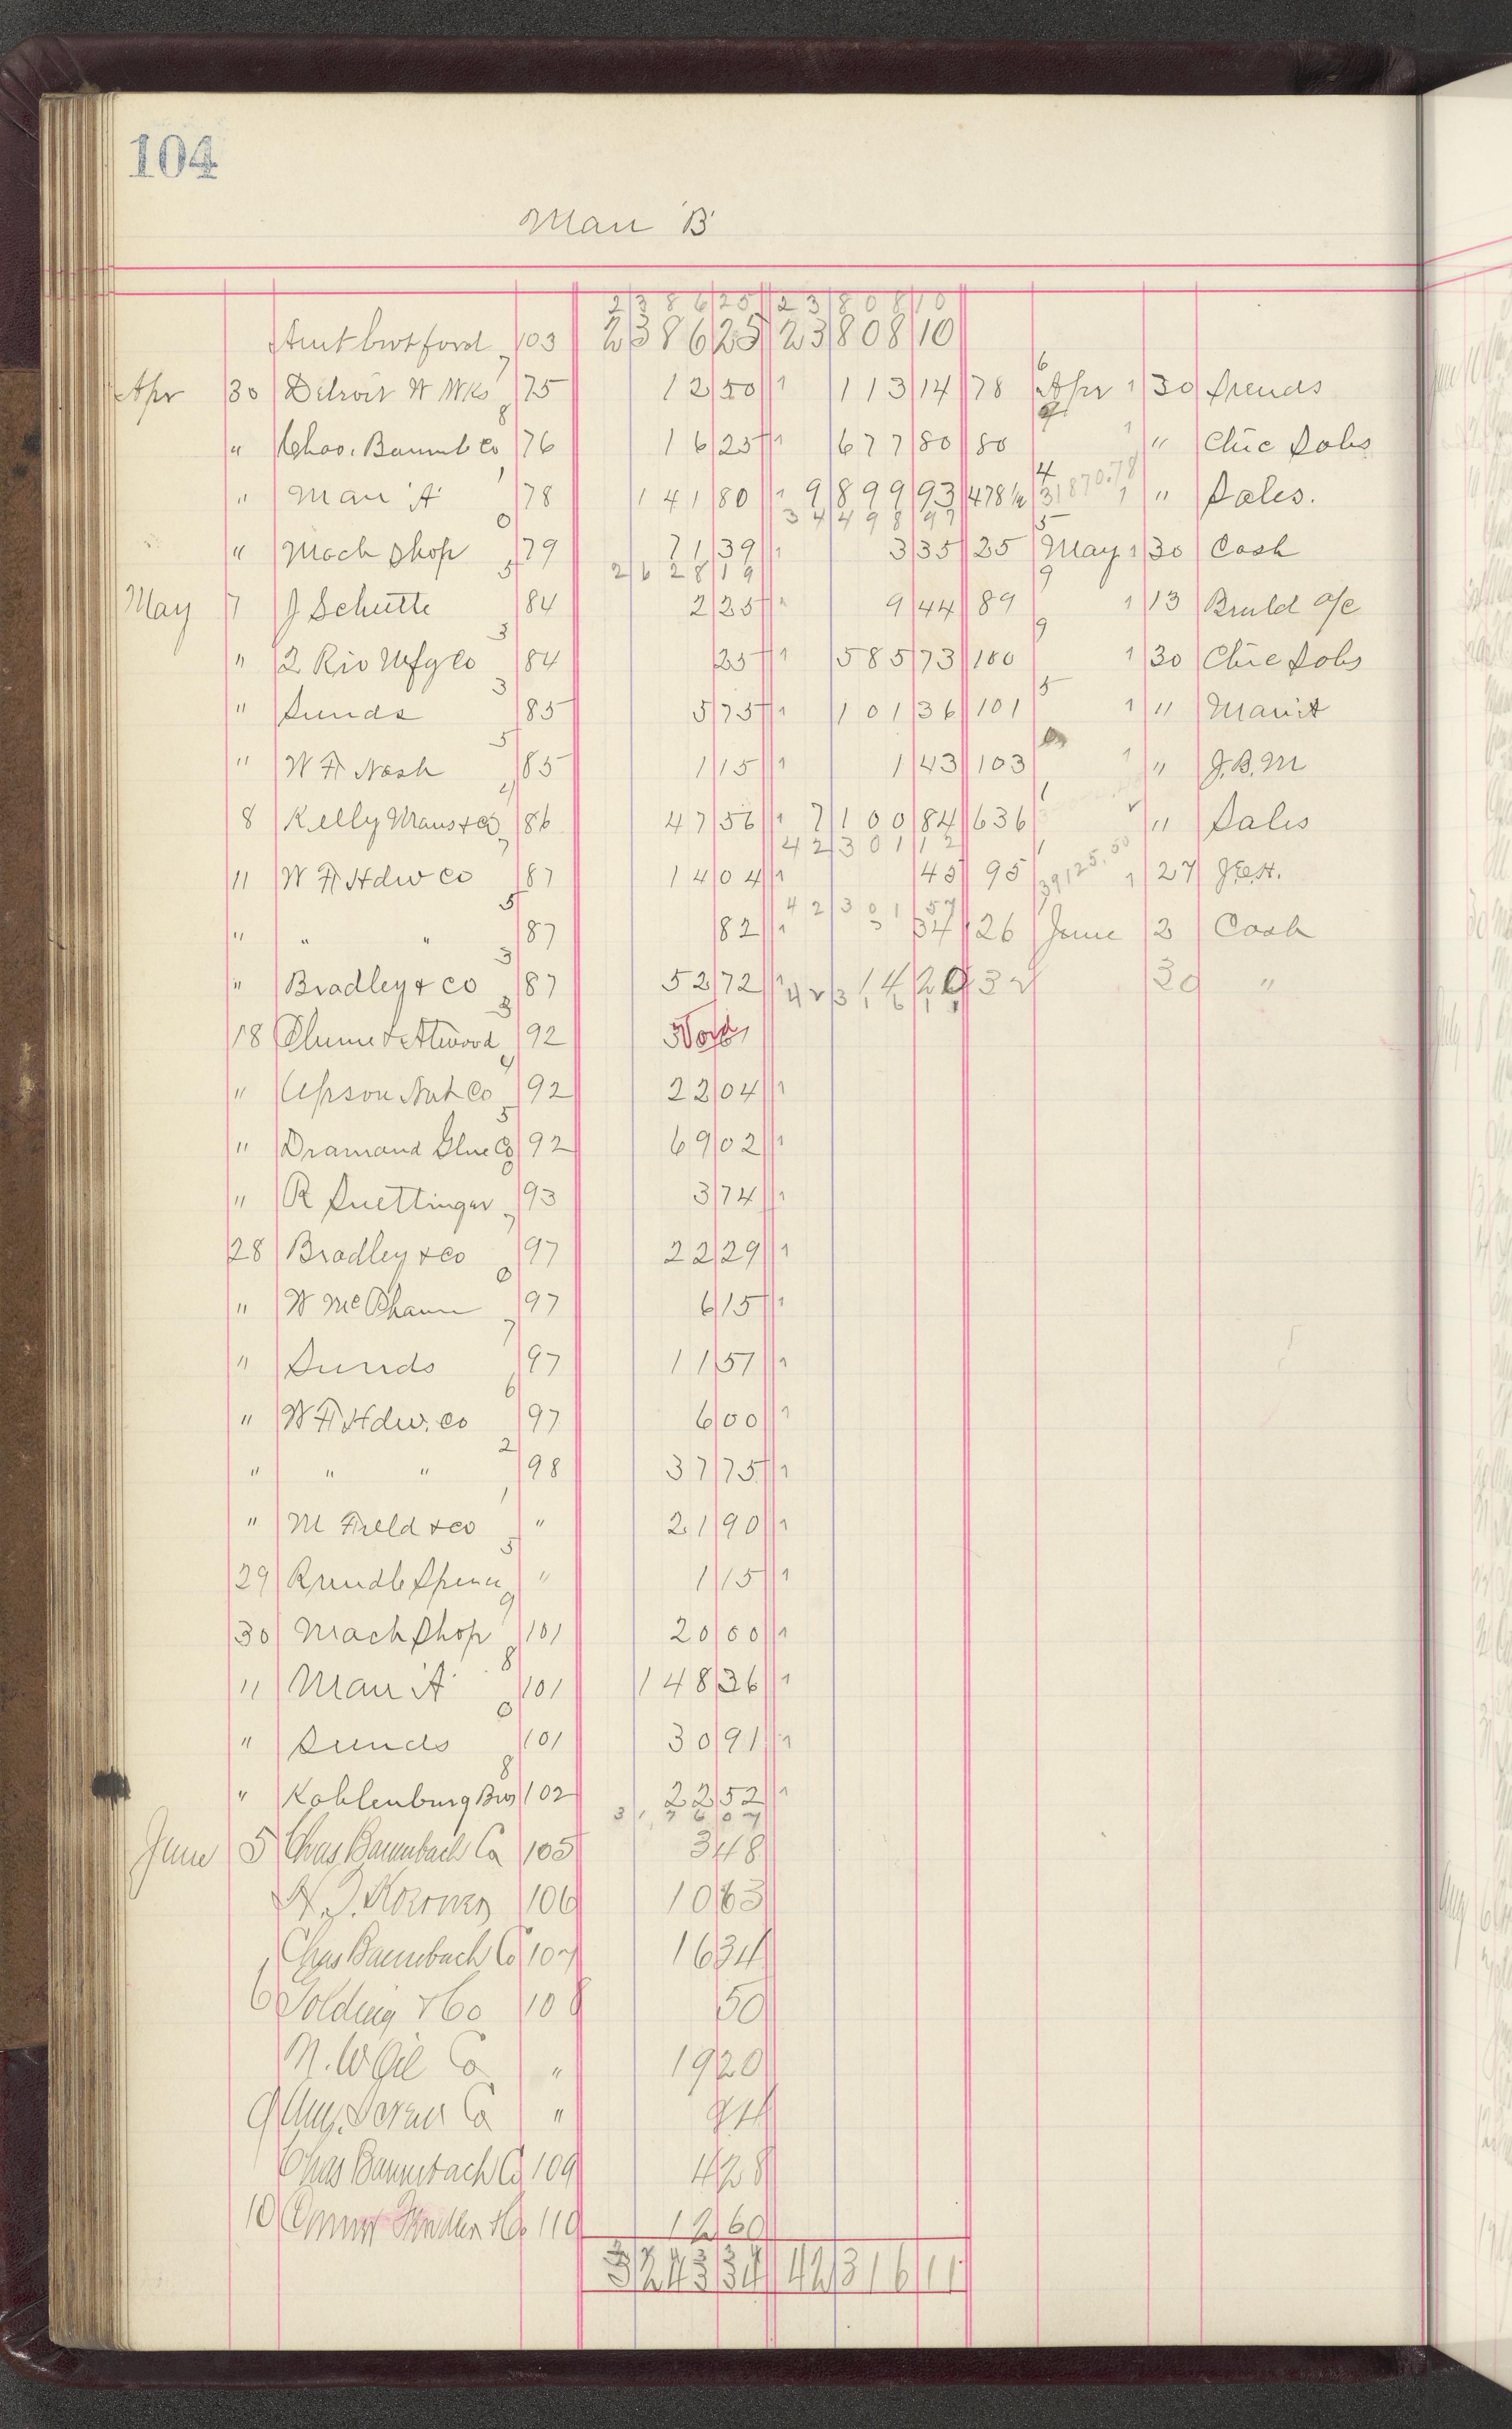 104
Man 'B'
2386 25 23808 10
Amt brot ford 103 2386 25 23808 10
Apr 30 Detroit W Wks 75 12 50 113 14 78 Apr 30 Sunds
" Chas. Baumb Co 76 16 25 677 80 80 " Chic Jobs
" Man 'A' 78 141 80 9899 93 478½ 31870.78 " Sales.
34498 97
" Mach Shop 79 71 39 3 35 25 May 30 Cash
2628 19
May 7 J Schutte 84 2 25 9 44 89 13 Build a/c
" 2 Riv Mfg Co 84 25 585 73 100 30 Chic Jobs
" Sunds 85 5 75 101 36 101 " Man 'A'
" W H Nash 85 1 15 1 43 103 " J.B.M
8 Kelly Maus & Co 86 47 56 7100 84 636 " Sales
42301 12
11 W H Hdw Co 87 14 04 45 95 39125.50 27
42301 57
" " " 87 82 34 126 June 2 Cash
" Bradley & Co 87 52 72 14 20 32 30 "
42316 11
18 Plume & Atwood 92 Void
" Upson Nut Co 92 22 04
" Diamond Glue Co 92 69 02
" R Suettinger 93 3 74
28 Bradley & Co 97 22 29
" W 97 6 15
" Sunds 97 11 57
" W H Hdw. Co 97 6 00
" " " 98 37 75
" M Field & Co " 21 90
29 Rundle Spence " 1 15
30 Mach Shop 101 20 00
" Man 'A' 101 148 36
" Sunds 101 30 91
" Kahlenburg Bros 102 22 52
3176 07
June 5 Chas Baumbach Co 105 3 48
106 10 63
Chas Baumbach Co 107 16 34
6 Golding & Co 108 50
N. W Oil Co " 19 20
9 Co "
Chas Baumbach Co 109 4 28
10 110 12 60
3243 34 42316 11